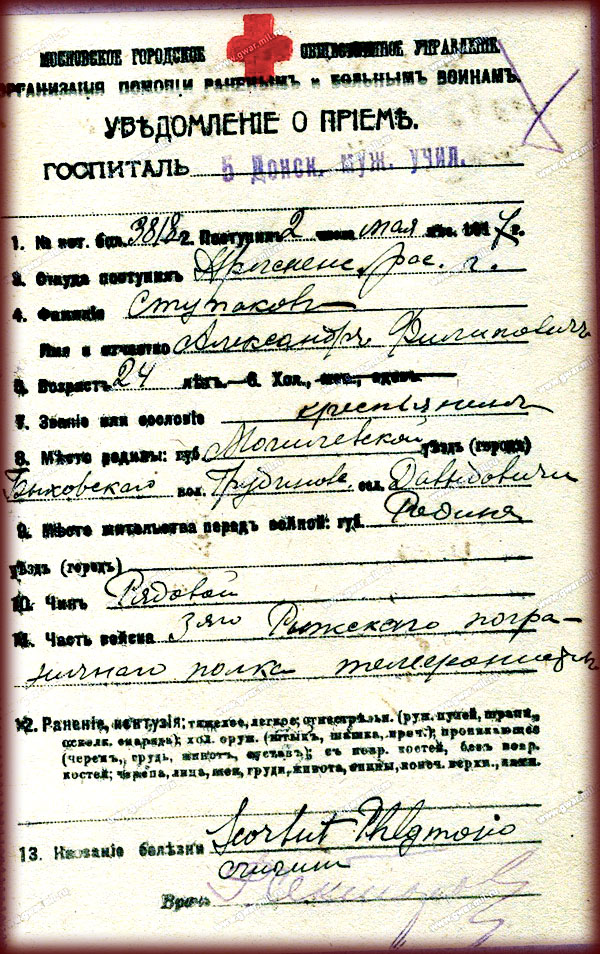 МОСКОВСКОЕ ГОРОДСКОЕ ОБЩЕСТВЕННОЕ УПРАВЛЕНІЕ
ОРГАНИЗАЦІЯ ПОМОЩИ РАНЕНЫМЪ и БОЛЬНЫМЪ ВОИНАМЪ.
УВѢДОМЛЕНІЕ О ПРІЕМѢ.
ГОСПИТАЛЬ 5 Донск. муж. учил.
1. № ист. бол. 3818 2. Поступилъ 2 числа мая мѣс. 1917 г.
3. Откуда поступилъ рас. г.
4. Фамилія Ступаковъ
Имя и отчество Александръ Филиповичъ
5. Возрастъ 24 лѣтъ.—6. Хол., жен., вдов.
7. Званіе или сословіе крестьянинъ
8. Мѣсто родины: губ. Могилевской уѣздъ (городъ)
Быховскаго вол. Грудинов. сел. Давыдовичи
9. Мѣсто жительства передъ войной: губ. Родина
уѣздъ (городъ)
10. Чинъ Рядовой
11. Часть войска 3яго Рижскаго погра-
ничнаго полка телефонистъ
12. Раненіе, контузія; тяжелое, легкое; огнестрѣльн. (руж. пулей, шрапн.,
осколк. снаряда); хол. оруж. (штыкъ, шашка, проч.); проникающее
(черепъ, грудь, животъ, суставъ); съ повр. костей, безъ повр.
костей; черепа, лица, шеи, груди, живота, спины, конеч. верхн., нижн.
13. Названіе болѣзни Scorbut Phlegmona
Врачъ